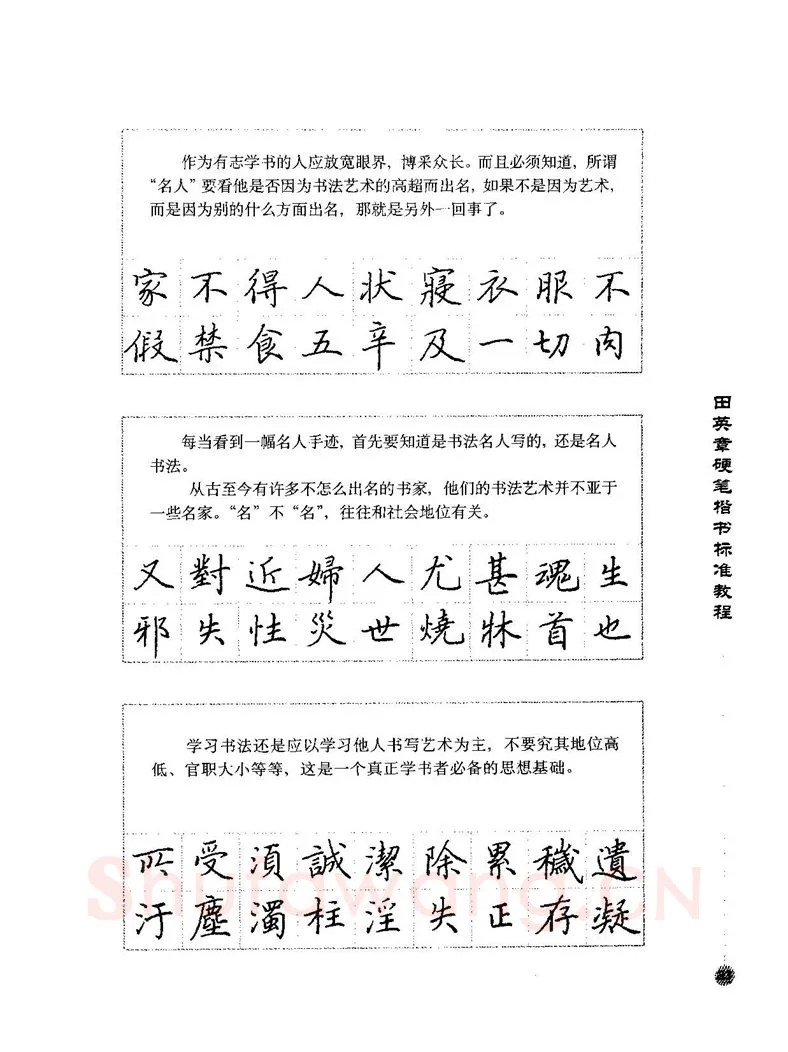 作为有志学书的人应放宽眼界，博采众长。而且必须知道，所谓
“名人”要看他是否因为书法艺术的高超而出名，如果不是因为艺术，
而是因为别的什么方面出名，那就是另外一回事了。
家不得人状寝衣服不
假禁食五辛及一切肉
每当看到一幅名人手迹，首先要知道是书法名人写的，还是名人
书法。
从古至今有许多不怎么出名的书家，他们的书法艺术并不亚于
一些名家。“名”不“名”，往往和社会地位有关。
又對近婦人尤甚魂生
邪失性災世燒牀首也
学习书法还是应以学习他人书写艺术为主，不要究其地位高
低、官职大小等等，这是一个真正学书者必备的思想基础。
所受須誠潔除累穢遺
汙塵濁柱淫失正存凝
田英章硬笔楷书标准教程
Shufawang.CN